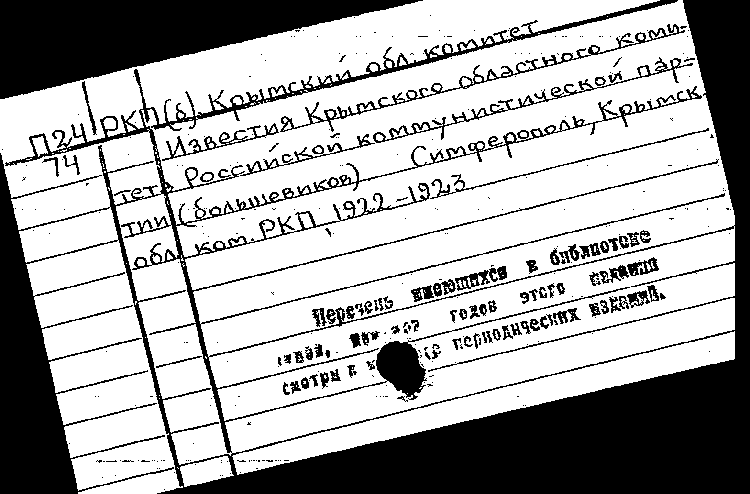 П24 РКП(б). Крымский обл. комитет
74 Известия Крымского областного коми-
тета Российской коммунистической пар-
тии (большевиков). Симферополь, Крымск.
обл. ком. РКП, 1922-1923
Перечень имеющихся в библиотеке
годов этого издания
смотри в периодических изданий.